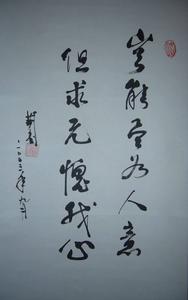 岂能尽如人意
但求无愧我心
二〇〇二年九月